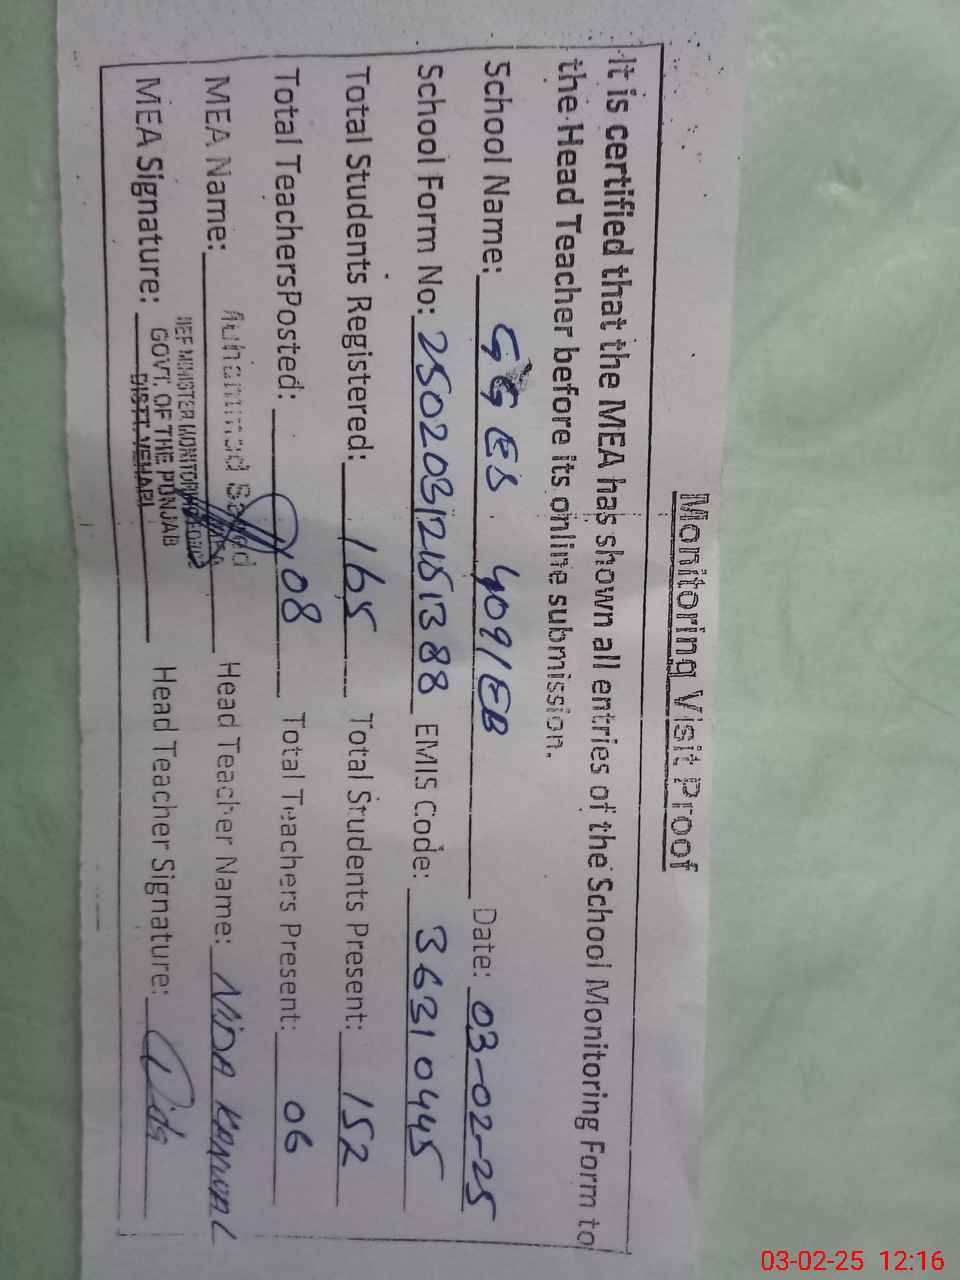 Monitoring Visit Proof
It is certified that the MEA has shown all entries of the School Monitoring Form to
the Head Teacher before its online submission.
School Name: GGES 409/EB Date: 03-02-25
School Form No: 25020312151388 EMIS Code: 36310445
Total Students Registered: 165 Total Students Present: 152
Total TeachersPosted: 08 Total Teachers Present: 06
MEA Name: Muhammad Saeed Head Teacher Name: NIDA KANWAL
MEA Signature: Head Teacher Signature: Nida
MINISTER MONITORING FORCE
GOVT. OF THE PUNJAB
DISTT. VEHARI
03-02-25 12:16